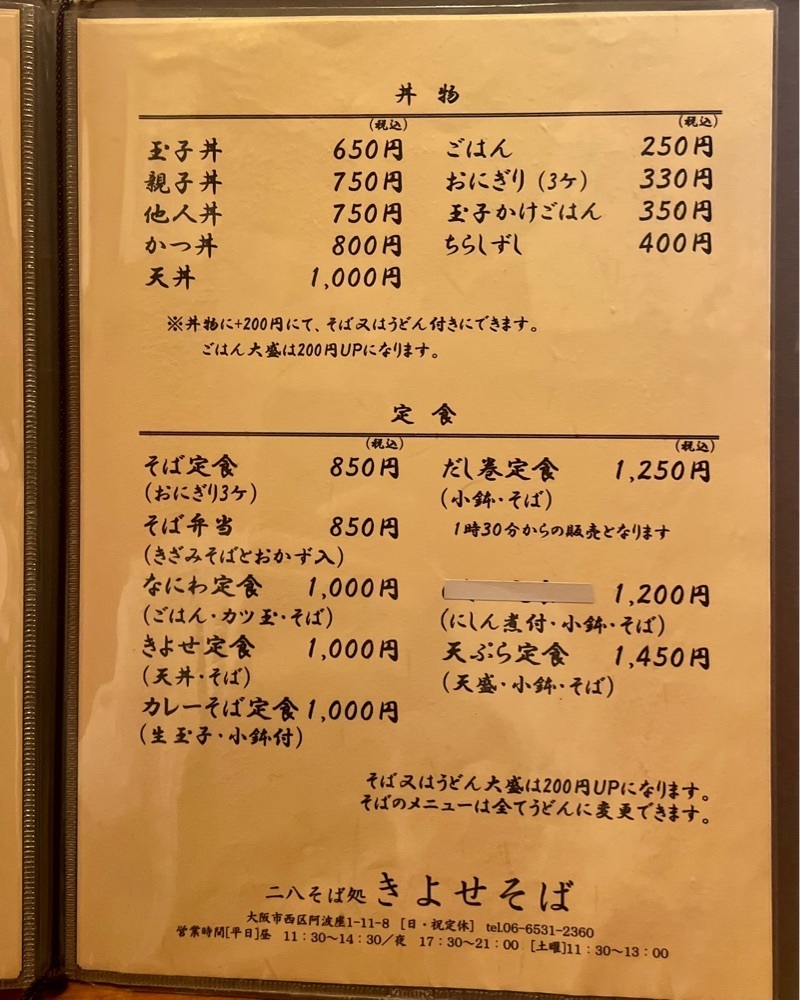 丼 物
(税込)
玉子丼 650円
親子丼 750円
他人丼 750円
かつ丼 800円
天丼 1,000円
(税込)
ごはん 250円
おにぎり (3ケ) 330円
玉子かけごはん 350円
ちらしずし 400円
※丼物に+200円にて、そば又はうどん付きにできます。
ごはん大盛は200円UPになります。
定 食
(税込)
そば定食 850円
(おにぎり3ケ)
そば弁当 850円
(きざみそばとおかず入)
なにわ定食 1,000円
(ごはん・カツ玉・そば)
きよせ定食 1,000円
(天丼・そば)
カレーそば定食 1,000円
(生玉子・小鉢付)
(税込)
だし巻定食 1,250円
(小鉢・そば)
1時30分からの販売となります
1,200円
(にしん煮付・小鉢・そば)
天ぷら定食 1,450円
(天盛・小鉢・そば)
そば又はうどん大盛は200円UPになります。
そばのメニューは全てうどんに変更できます。
二八そば処 きよせそば
大阪市西区阿波座1-11-8 [日・祝定休] tel.06-6531-2360
営業時間[平日]昼 11:30~14:30/夜 17:30~21:00 [土曜]11:30~13:00